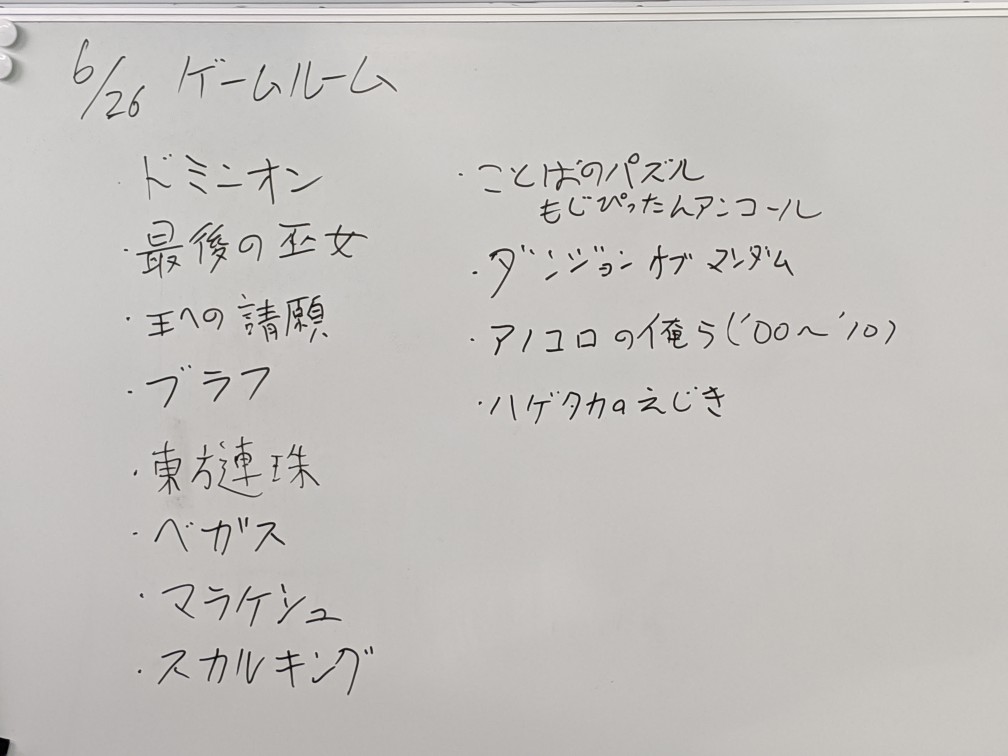 6/26 ゲームルーム
ドミニオン
・最後の巫女
・王への請願
・ブラフ
・東方連珠
・ベガス
・マラケシュ
・スカルキング
・ことばのパズル
もじぴったんアンコール
・ダンジョンオブマンダム
・アノコロの俺ら('00〜'10)
・ハゲタカのえじき